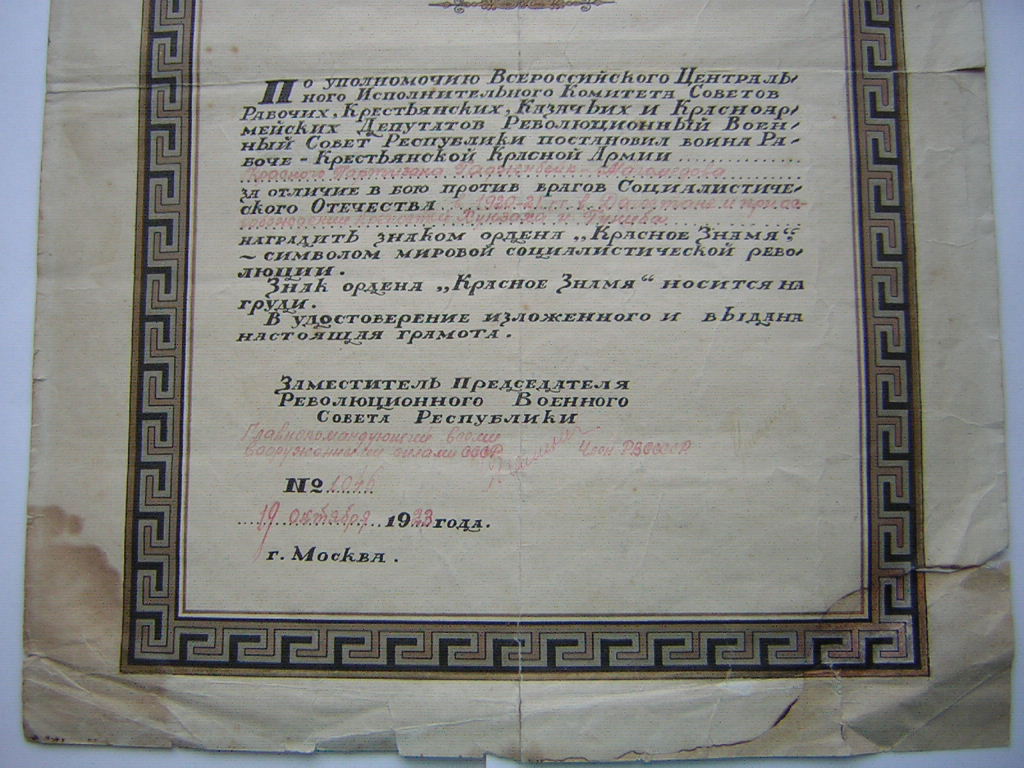 По уполномочию Всероссийского Централь-
ного Исполнительного Комитета Советов
Рабочих, Крестьянских, Казачьих и Красноар-
мейских Депутатов Революционный Воен-
ный Совет Республики постановил воина Ра-
боче-Крестьянской Красной Армии
Красного Партизана Магомедова
за отличие в бою против врагов Социалистиче-
ского Отечества в 1920-21 гг. в Дагестане при ос-
крепостей Хунзаха и Гуниба
наградить знаком ордена „Красное Знамя“,
~ символом мировой социалистической рево-
люции.
Знак ордена „Красное Знамя“ носится на
груди.
В удостоверение изложенного и выдана
настоящая грамота.
Заместитель Председателя
Революционного Военного
Совета Республики
Главнокомандующий всеми
вооруженными силами СССР Член РВСССР
№
19 октября 1923 года.
г. Москва.